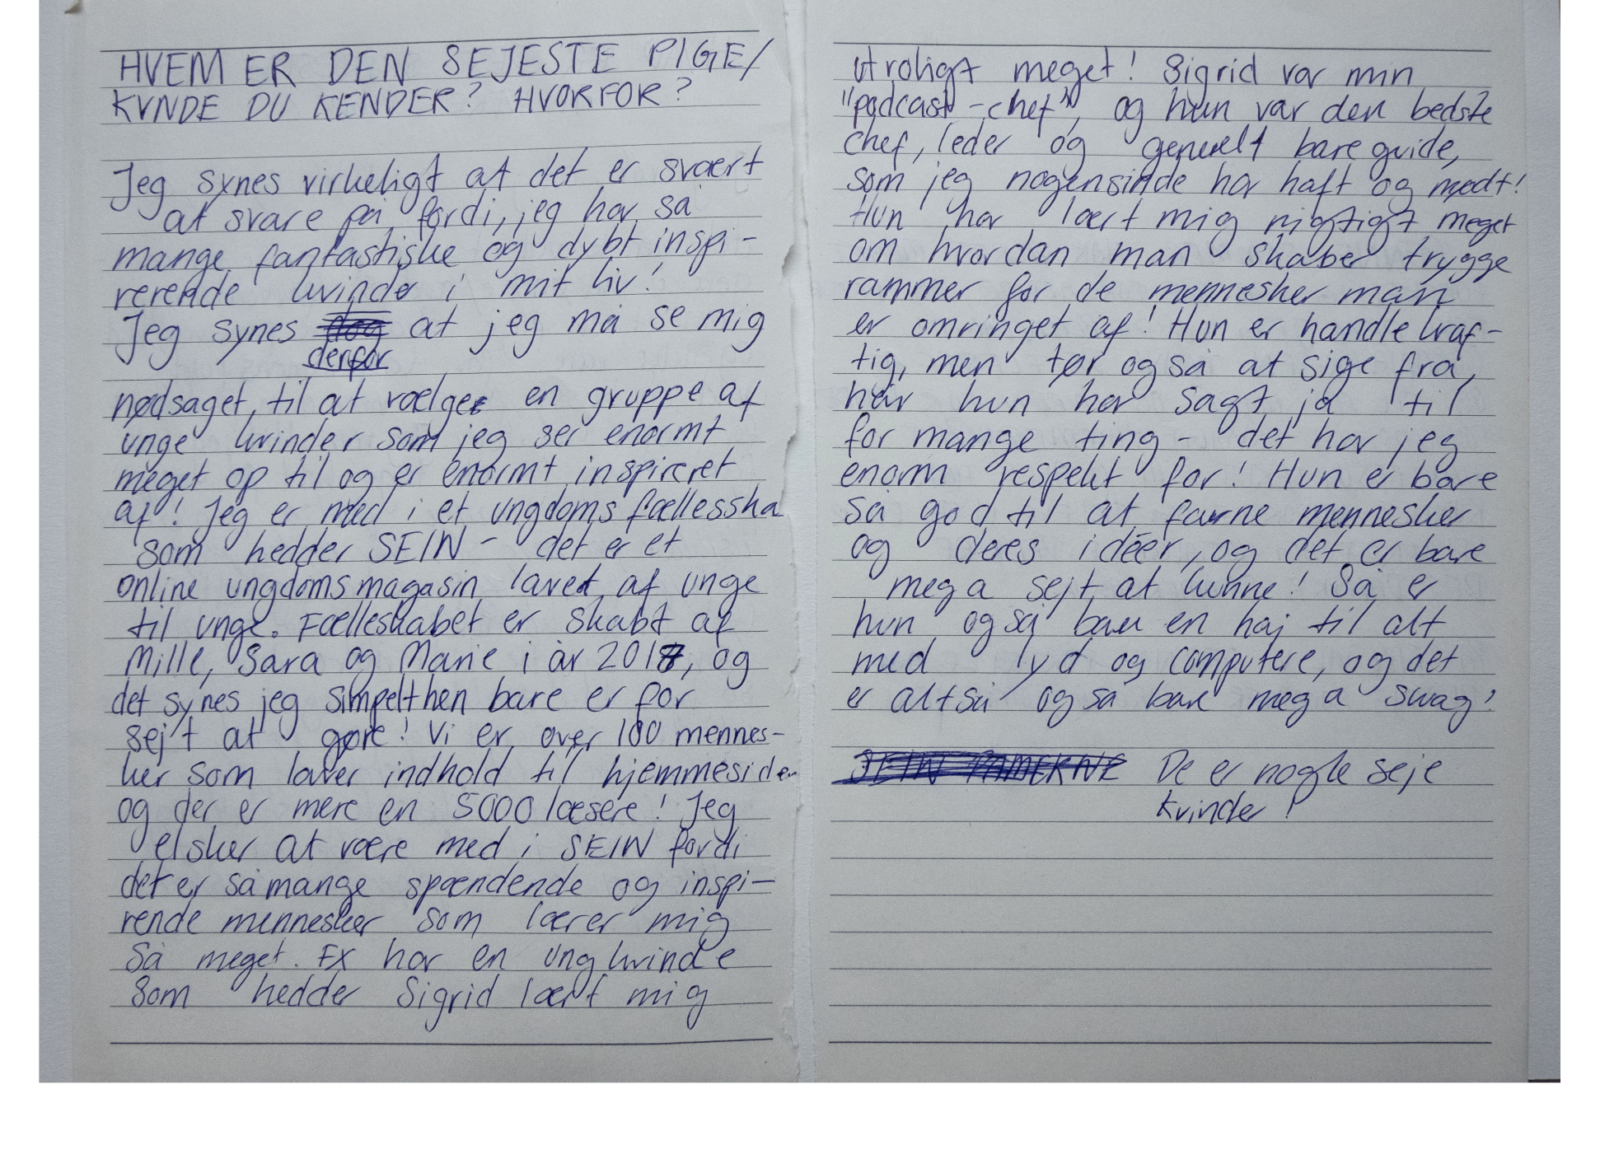 HVEM ER DEN SEJESTE PIGE/
KVNDE DU KENDER? HVORFOR?
Jeg synes virkeligt at det er svært
at svare på fordi, jeg har så
mange fantastiske og dybt inspi-
rerende kvinder i mit liv!
Jeg synes derfor at jeg må se mig
nødsaget til at vælge en gruppe af
unge kvinder som jeg ser enormt
meget op til og er enormt inspireret
af! Jeg er med i et ungdomsfællesska
som hedder SEIN - det er et
online ungdomsmagasin lavet af unge
til unge. Fælleskabet er skabt af
Mille, Sara og Marie i år 2017, og
det synes jeg simpelthen bare er for
sejt at gøre! Vi er over 100 mennes-
ker som laver indhold til hjemmesiden
og der er mere en 5000 læsere! Jeg
elsker at være med i SEIN fordi
det er så mange spændende og inspi-
rende mennesker som lærer mig
så meget. Ex har en ung kvinde
som hedder Sigrid lært mig
utroligt meget! Sigrid var min
"podcast-chef", og hun var den bedste
chef, leder og generelt bare guide,
som jeg nogensinde har haft og mødt!
Hun har lært mig rigtigt meget
om hvordan man skaber trygge
rammer for de mennesker man
er omringet af! Hun er handlekraf-
tig, men tør også at sige fra,
når hun har sagt ja til
for mange ting - det har jeg
enorm respekt for! Hun er bare
så god til at favne mennesker
og deres idéer, og det er bare
mega sejt at kunne! Så er
hun også bare en haj til alt
med lyd og computere, og det
er altså også bare mega swag!
De er nogle seje
kvinder!